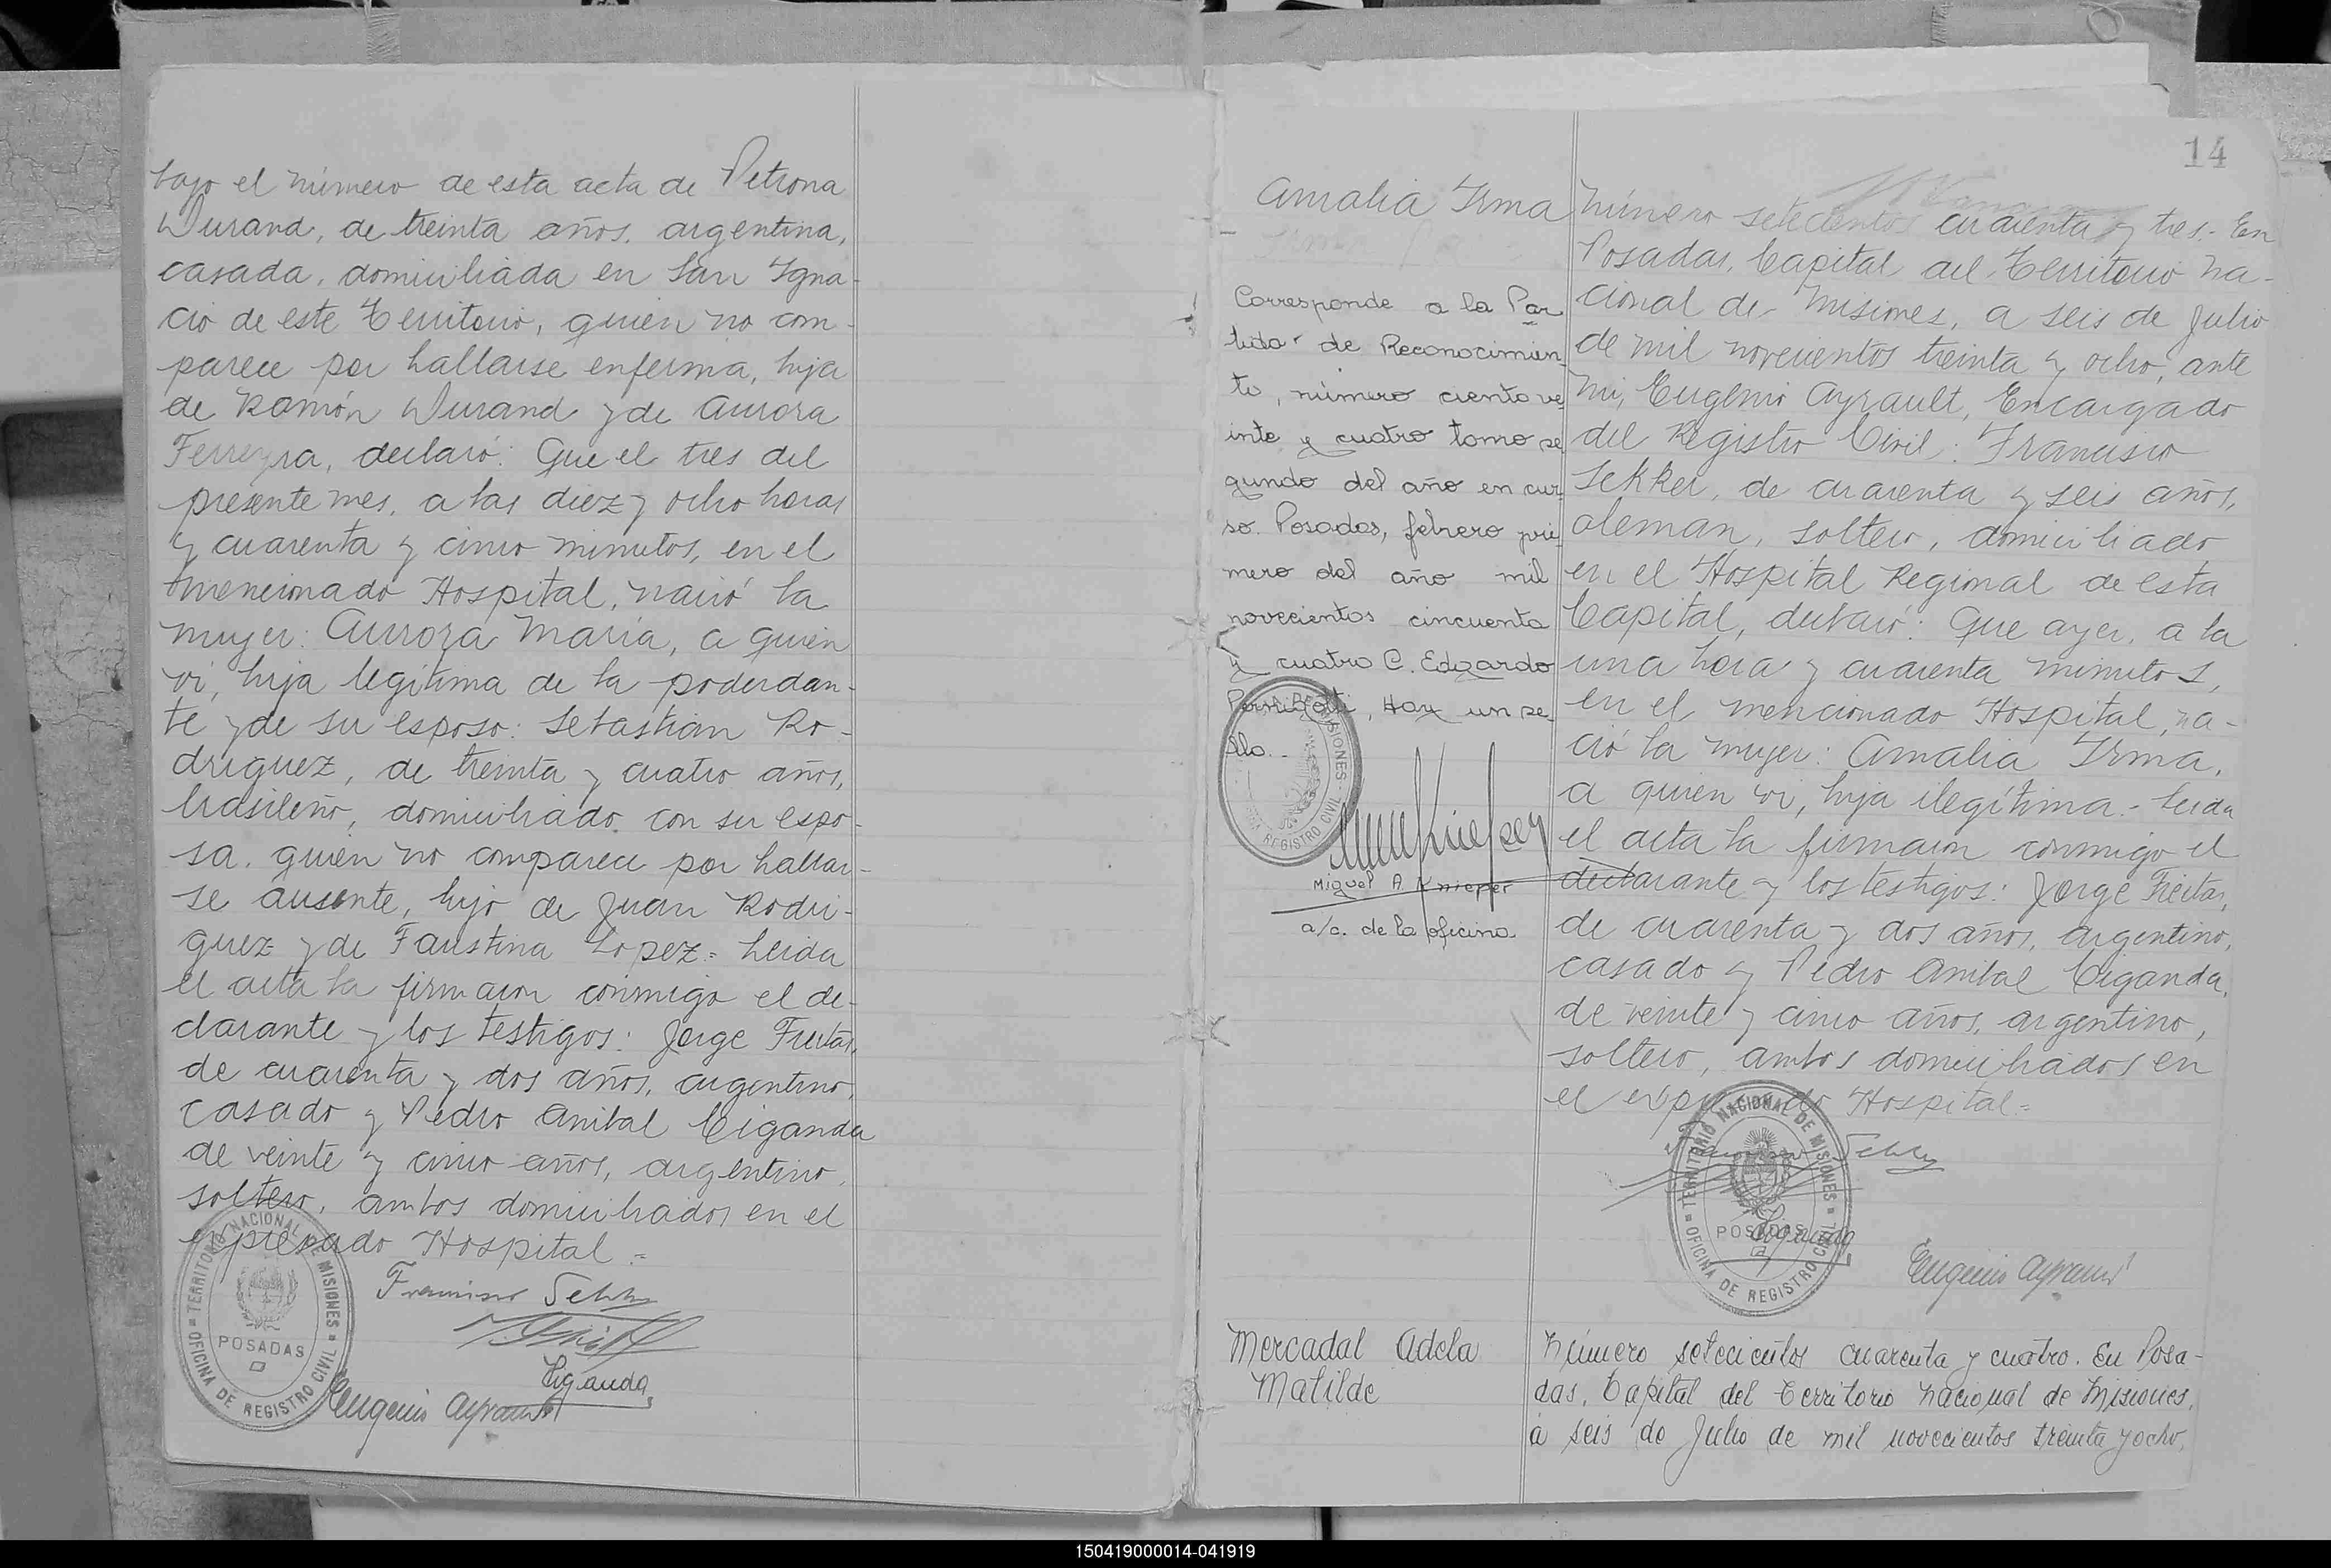 bajo el número de esta acta de Petrona
Durand, de treinta años, argentina,
casada, domiciliada en San Igna-
cio de este Territorio, quien no com-
parece por hallarse enferma, hija
de Ramón Durand y de Aurora
Ferreyra, declaró: Que el tres del
presente mes, a las diez y ocho horas
y cuarenta y cinco minutos, en el
mencionado Hospital, nació la
mujer: Aurora Maria, a quien
vi, hija legítima de la poderdan-
te y de su esposo: Sebastian Ro-
driguez, de treinta y cuatro años,
brasileño, domiciliado con su espo-
sa, quien no comparece por hallar-
se ausente, hijo de Juan Rodri-
guez y de Faustina Lopez.= Leida
el acta la firmaron conmigo el de-
clarante y los testigos: Jorge Freitas,
de cuarenta y dos años, argentino,
casado y Pedro Anibal Ciganda
de veinte y cinco años, argentino,
soltero, ambos domiciliados en el
expresado Hospital.=
TERRITORIO NACIONAL DE MISIONES
POSADAS
OFICINA DE REGISTRO CIVIL
Ciganda
Eugenio Ayrault
14
Amalia Irma
Corresponde a la Par
tida de Reconocimien
to, número ciento ve
inte y cuatro tomo se
gundo del año en cur
so. Posadas, febrero pri
mero del año mil
novecientos cincuenta
y cuatro C. Edgardo
, Hay un se-
llo.-
MISIONES
REGISTRO CIVIL
Miguel A Knieper
a/c. de la oficina
Número setecientos cuarenta y tres.- En
Posadas, Capital del Territorio Na-
cional de Misiones, a seis de Julio
de mil novecientos treinta y ocho, ante
mi, Eugenio Ayrault, Encargado
del Registro Civil: Francisco
Sekker, de cuarenta y seis años,
aleman, soltero, domiciliado
en el Hospital Regional de esta
Capital, declaró: Que ayer, a la
una hora y cuarenta minutos,
en el mencionado Hospital, na-
ció la mujer: Amalia Irma,
a quien vi, hija ilegítima.- Leida
el acta la firmaron conmigo el
declarante y los testigos: Jorge Freitas,
de cuarenta y dos años, argentino,
casado y Pedro Anibal Ciganda,
de veinte y cinco años, argentino,
soltero, ambos domiciliados en
el expresado Hospital.=
TERRITORIO NACIONAL DE MISIONES
POSADAS
OFICINA DE REGISTRO CIVIL
Ciganda
Eugenio Ayrault
Mercadal Adela
Matilde
Número setecientos cuarenta y cuatro. En Posa-
das, Capital del Territorio Nacional de Misiones,
a seis de Julio de mil novecientos treinta y ocho,
150419000014-041919